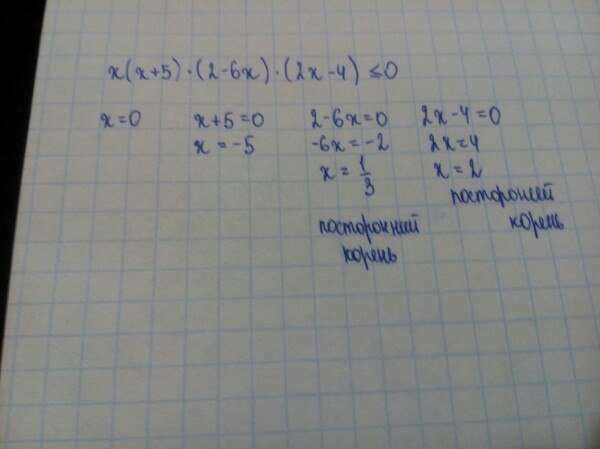 x(x+5)·(2-6x)·(2x-4) ≤0
x=0 x+5=0 2-6x=0 2x-4=0
x=-5 -6x=-2 2x=4
x=1/3 x=2
посторонний
корень
посторонний
корень